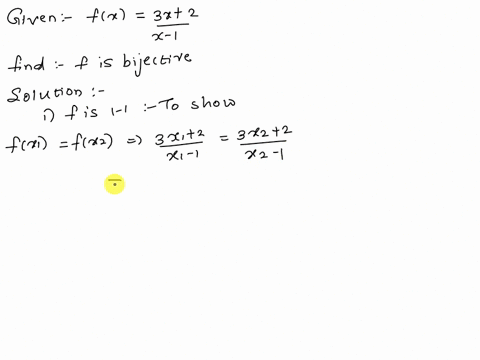 Given:- f(x) = 3x+2 / x-1
find :- f is bijective
Solution :-
i) f is 1-1 :- To show
f(x1) = f(x2) => 3x1+2 / x1-1 = 3x2+2 / x2-1